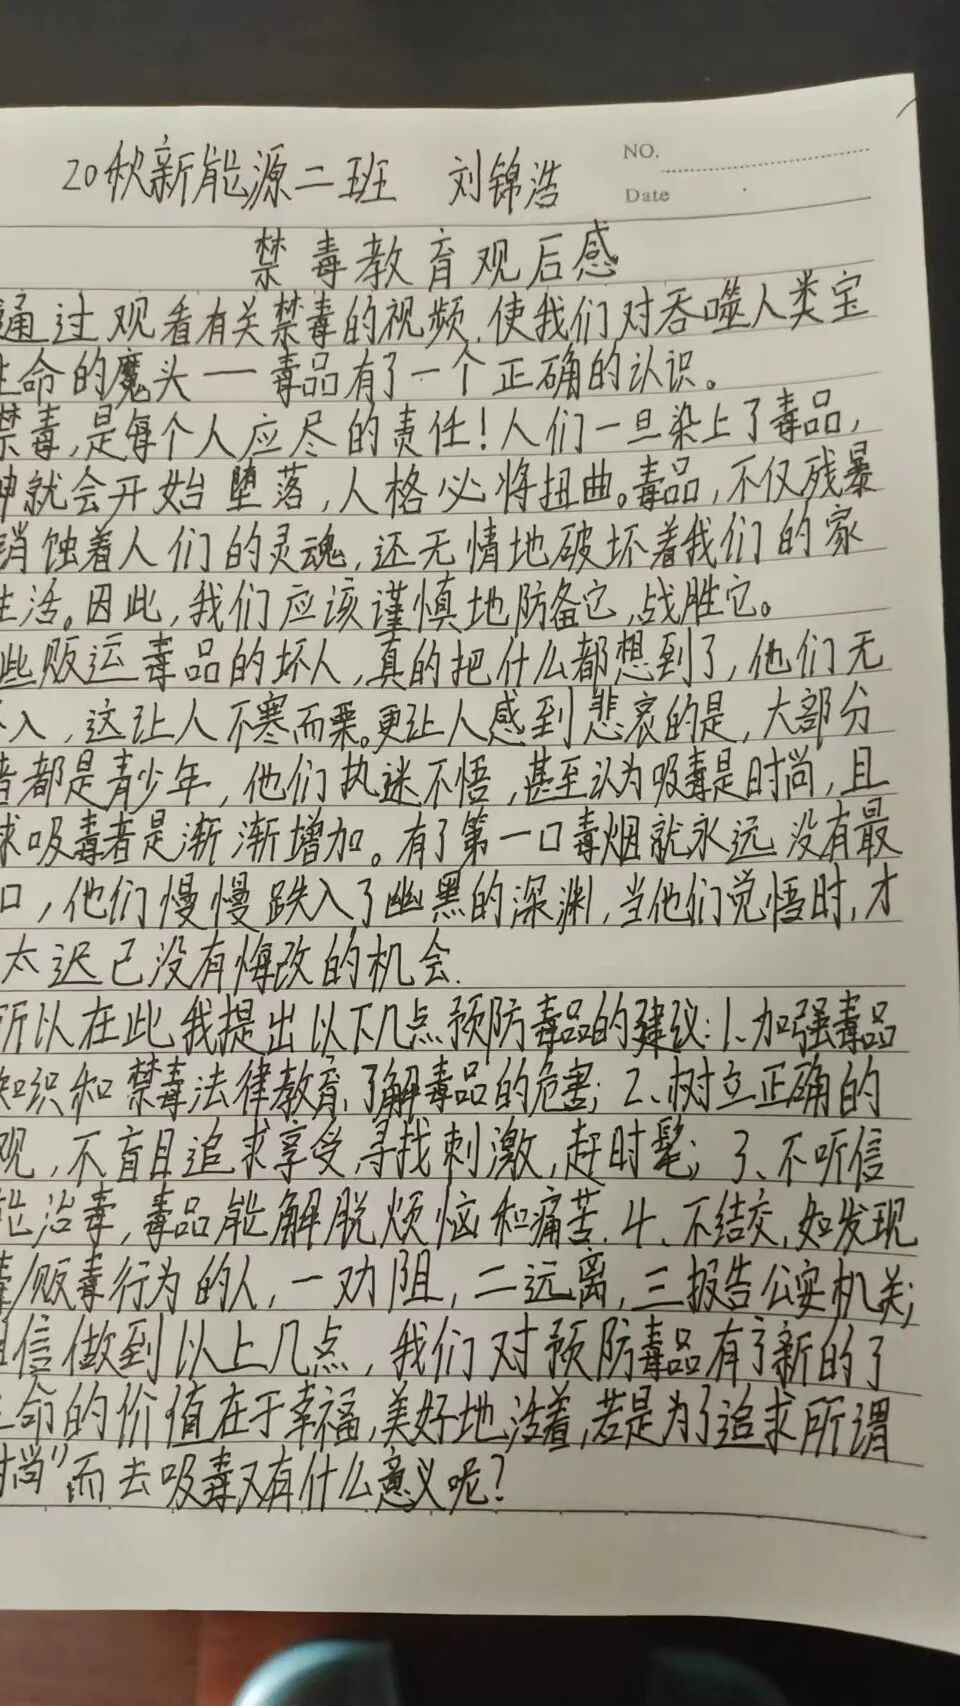 NO.
20秋新能源二班 刘锦浩
Date
禁毒教育观后感
通过观看有关禁毒的视频,使我们对吞噬人类宝
生命的魔头一一毒品有了一个正确的认识。
禁毒,是每个人应尽的责任!人们一旦染上了毒品,
神就会开始堕落,人格必将扭曲。毒品,不仅残暴
销蚀着人们的灵魂,还无情地破坏着我们的家
生活。因此,我们应该谨慎地防备它,战胜它。
些贩运毒品的坏人,真的把什么都想到了,他们无
不入,这让人不寒而栗。更让人感到悲哀的是,大部分
者都是青少年,他们执迷不悟,甚至认为吸毒是时尚,且
求吸毒者是渐渐增加。有了第一口毒烟就永远没有最
口,他们慢慢跌入了幽黑的深渊,当他们觉悟时,才
太迟已没有悔改的机会.
所以在此,我提出以下几点预防毒品的建议:1、加强毒品
知识和禁毒法律教育,了解毒品的危害;2、树立正确的
观,不盲目追求享受,寻找刺激,赶时髦;3、不听信
能治毒,毒品能解脱烦恼和痛苦.4、不结交,如发现
毒/贩毒行为的人,一劝阻,二远离,三报告公安机关;
相信做到以上几点,我们对预防毒品有了新的了
生命的价值在于幸福,美好地活着,若是为了追求所谓
时尚",而去吸毒又有什么意义呢?